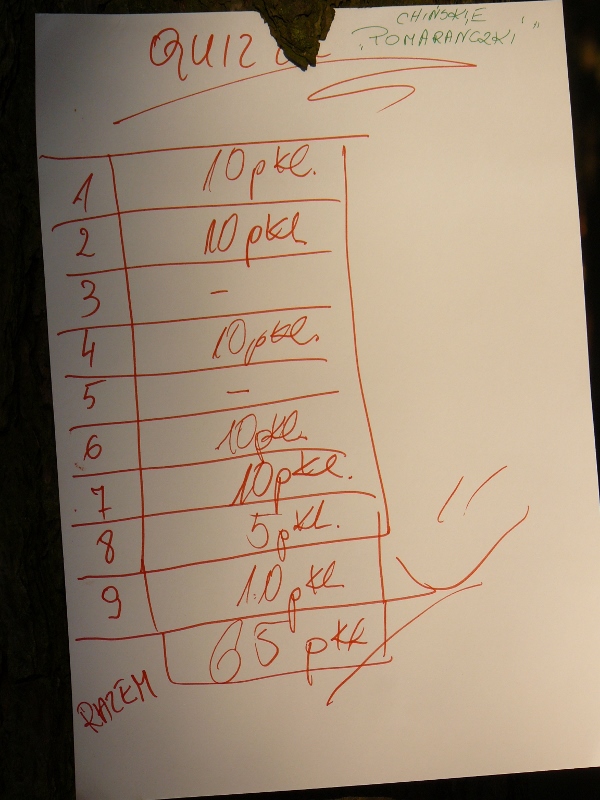 CHIŃSKIE
"POMARAŃCZKI"
QUIZ
1 10 pkt.
2 10 pkt
3 -
4 10 pkt.
5 -
6 10 pkt.
7 10 pkt.
8 5 pkt.
9 10 pkt
RAZEM 65 pkt